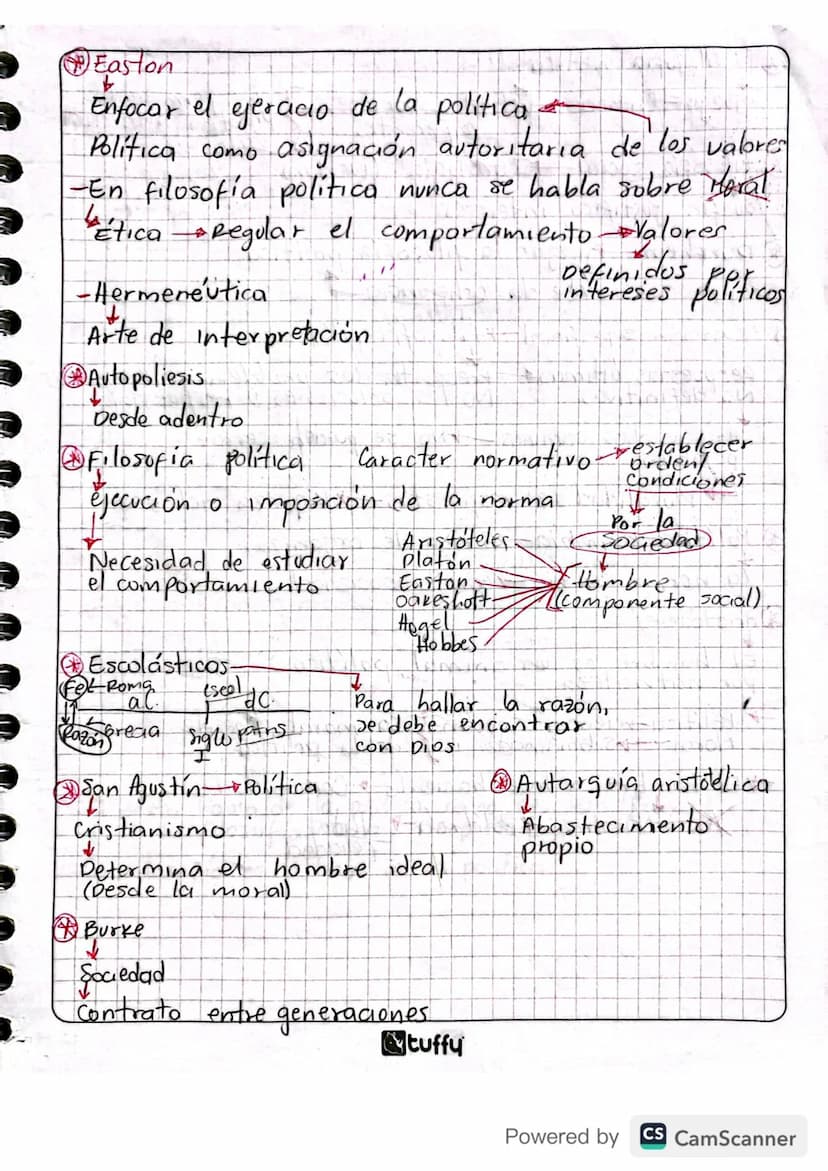 Easton
Enfocar el ejercicio de la política
Política como asignación autoritaria de los valores
-En filosofía política nunca se habla sobre Moral
Ética → Regular el comportamiento → Valores
Definidos por
intereses políticos
-Hermenéutica
Arte de interpretación
Autopoliesis
Desde adentro
Filosofía política Caracter normativo → establecer
orden/
condiciones
ejecución o imposición de la norma
Por la
sociedad
Necesidad de estudiar
el comportamiento
Aristóteles
Platón
Easton
Oakeshott
Hegel
Hobbes
Hombre
(componente social).
Escolásticos
Fe Roma
aC. dC.
Razón Grecia Siglo
I
Para hallar la razón,
se debe encontrar
con Dios
San Agustín → Política
Cristianismo
Determina el hombre ideal
(Desde la moral)
Autarquía aristotélica
Abastecimento
propio
Burke
Sociedad
Contrato entre generaciones
tuffy
Powered by CS CamScanner